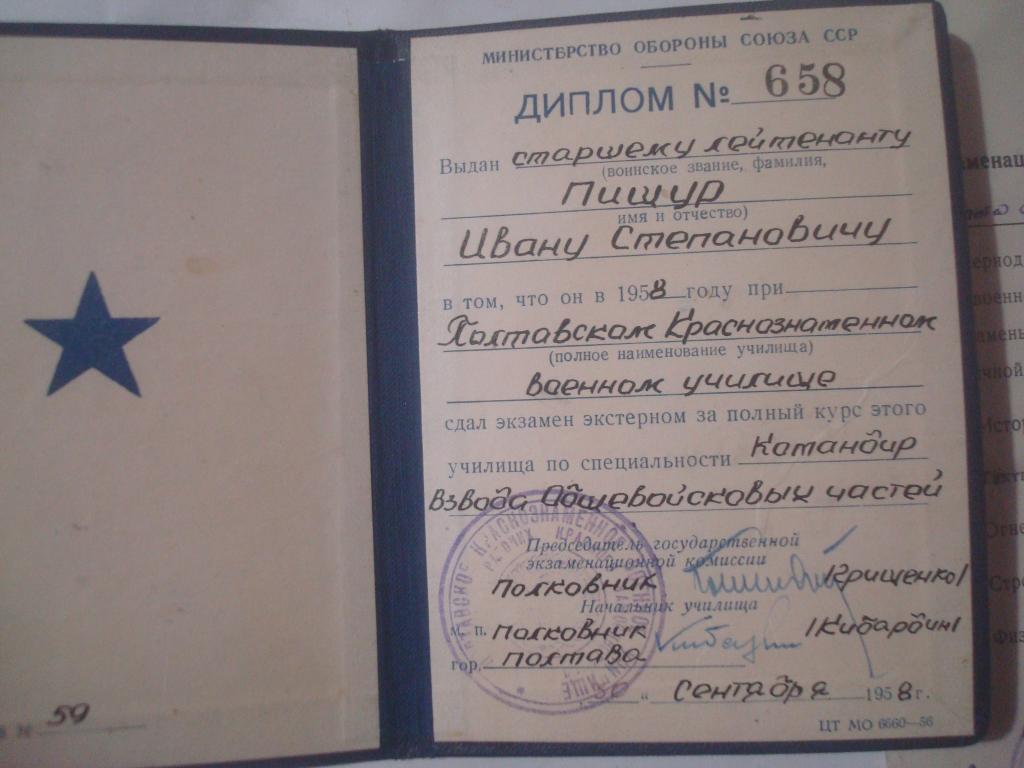 МИНИСТЕРСТВО ОБОРОНЫ СОЮЗА ССР
ДИПЛОМ № 658
Выдан старшему лейтенанту
(воинское звание, фамилия,
Пищур
имя и отчество)
Ивану Степановичу
в том, что он в 1958 году при
Полтавском Краснознаменном
(полное наименование училища)
военном училище
сдал экзамен экстерном за полный курс этого
училища по специальности Командир
взвода общевойсковых частей
Председатель государственной
экзаменационной комиссии
Полковник /Крищенко/
Начальник училища
м. п. полковник /Кибардин/
гор. Полтава
" Сентября 1958 г.
ЦТ МО 6660—56
№ 59